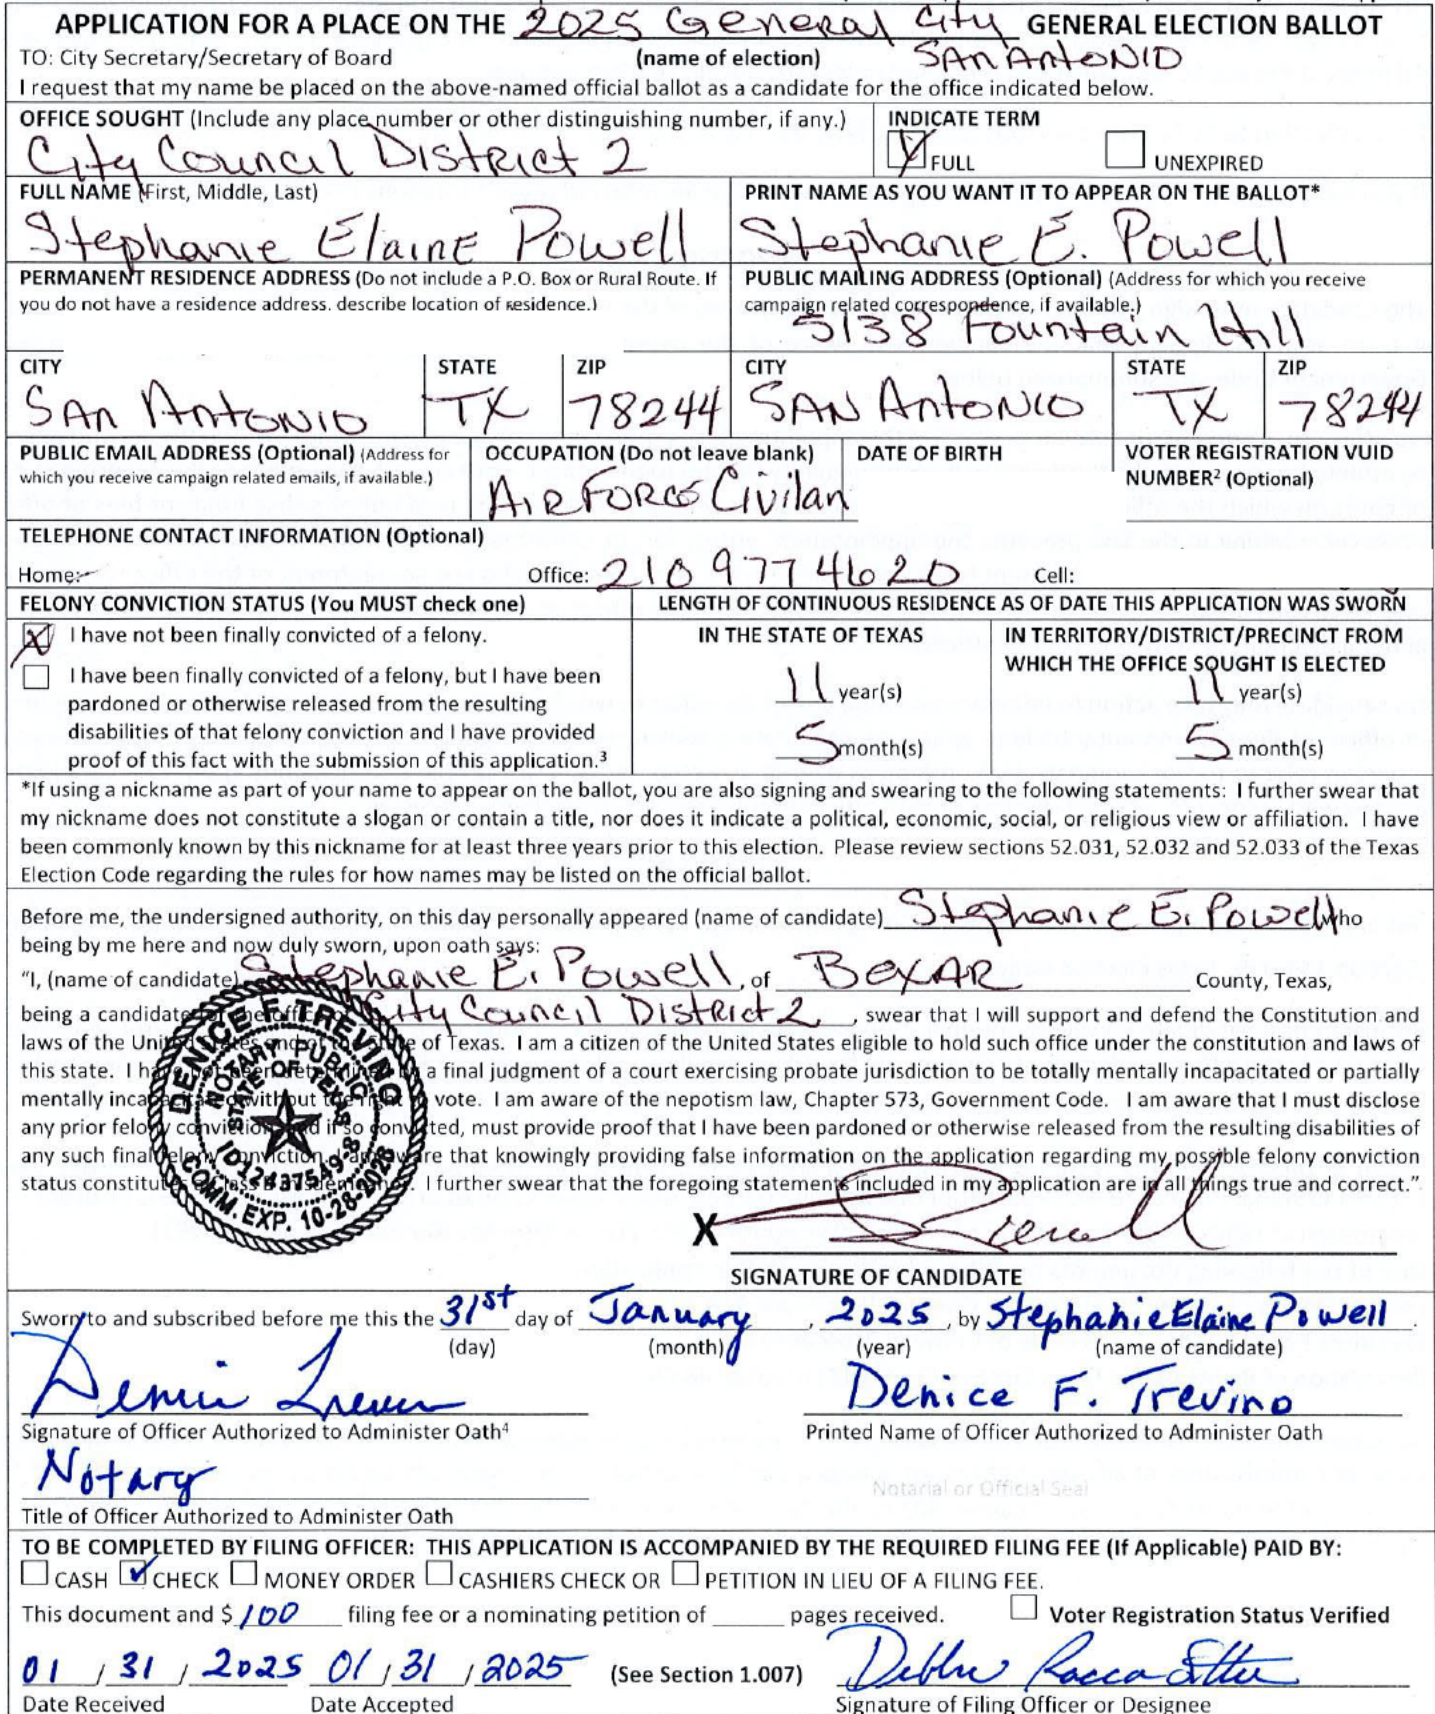 APPLICATION FOR A PLACE ON THE 2025 General City GENERAL ELECTION BALLOT
TO: City Secretary/Secretary of Board (name of election) San Antonio
I request that my name be placed on the above-named official ballot as a candidate for the office indicated below.
OFFICE SOUGHT (Include any place number or other distinguishing number, if any.) INDICATE TERM
City Council District 2 FULL UNEXPIRED
FULL NAME (First, Middle, Last) PRINT NAME AS YOU WANT IT TO APPEAR ON THE BALLOT*
Stephanie Elaine Powell Stephanie E. Powell
PERMANENT RESIDENCE ADDRESS (Do not include a P.O. Box or Rural Route. If PUBLIC MAILING ADDRESS (Optional) (Address for which you receive
you do not have a residence address. describe location of residence.) campaign related correspondence, if available.)
5138 Fountain Hill
CITY STATE ZIP CITY STATE ZIP
San Antonio TX 78244 San Antonio TX 78244
PUBLIC EMAIL ADDRESS (Optional) (Address for OCCUPATION (Do not leave blank) DATE OF BIRTH VOTER REGISTRATION VUID
which you receive campaign related emails, if available.) NUMBER² (Optional)
Air Force Civilan
TELEPHONE CONTACT INFORMATION (Optional)
Home: Office: 210 977 4620 Cell:
FELONY CONVICTION STATUS (You MUST check one) LENGTH OF CONTINUOUS RESIDENCE AS OF DATE THIS APPLICATION WAS SWORN
X I have not been finally convicted of a felony. IN THE STATE OF TEXAS IN TERRITORY/DISTRICT/PRECINCT FROM
WHICH THE OFFICE SOUGHT IS ELECTED
I have been finally convicted of a felony, but I have been
pardoned or otherwise released from the resulting 11 year(s) 11 year(s)
disabilities of that felony conviction and I have provided
proof of this fact with the submission of this application.³ 5 month(s) 5 month(s)
*If using a nickname as part of your name to appear on the ballot, you are also signing and swearing to the following statements: I further swear that
my nickname does not constitute a slogan or contain a title, nor does it indicate a political, economic, social, or religious view or affiliation. I have
been commonly known by this nickname for at least three years prior to this election. Please review sections 52.031, 52.032 and 52.033 of the Texas
Election Code regarding the rules for how names may be listed on the official ballot.
Before me, the undersigned authority, on this day personally appeared (name of candidate) Stephanie E. Powell who
being by me here and now duly sworn, upon oath says:
"I, (name of candidate) Stephanie E. Powell, of BexAR County, Texas,
being a candidate for the office of City Council District 2, swear that I will support and defend the Constitution and
laws of the United States and of the State of Texas. I am a citizen of the United States eligible to hold such office under the constitution and laws of
this state. I have not been determined by a final judgment of a court exercising probate jurisdiction to be totally mentally incapacitated or partially
mentally incapacitated without the right to vote. I am aware of the nepotism law, Chapter 573, Government Code. I am aware that I must disclose
any prior felony conviction, and if so convicted, must provide proof that I have been pardoned or otherwise released from the resulting disabilities of
any such final felony conviction. I am aware that knowingly providing false information on the application regarding my possible felony conviction
status constitutes a Class B misdemeanor. I further swear that the foregoing statements included in my application are in all things true and correct."
DENICE F. TREVINO
NOTARY PUBLIC
STATE OF TEXAS
COMM. EXP. 10-28-2028
X Powell
SIGNATURE OF CANDIDATE
Sworn to and subscribed before me this the 31st day of January, 2025, by Stephanie Elaine Powell.
(day) (month) (year) (name of candidate)
Denice F. Trevino
Signature of Officer Authorized to Administer Oath⁴ Printed Name of Officer Authorized to Administer Oath
Notary
Notarial or Official Seal
Title of Officer Authorized to Administer Oath
TO BE COMPLETED BY FILING OFFICER: THIS APPLICATION IS ACCOMPANIED BY THE REQUIRED FILING FEE (If Applicable) PAID BY:
CASH CHECK MONEY ORDER CASHIERS CHECK OR PETITION IN LIEU OF A FILING FEE.
This document and $ 100 filing fee or a nominating petition of pages received. Voter Registration Status Verified
01 / 31 / 2025 01 / 31 / 2025 (See Section 1.007)
Date Received Date Accepted Signature of Filing Officer or Designee